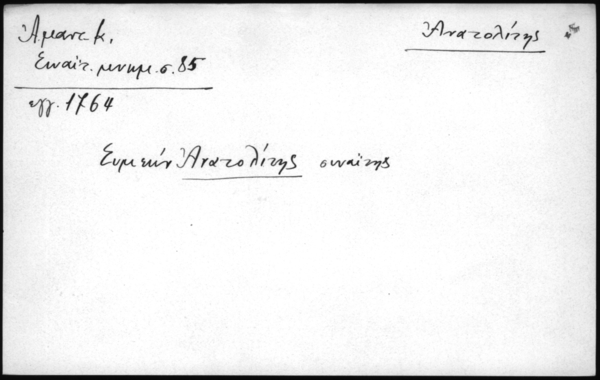 Ἀμαντ κ.
Σιναϊτ. μνημ. σ. 85
εγγ. 1764
Ἀνατολίτης
Συμεών Ἀνατολίτης σιναΐτης